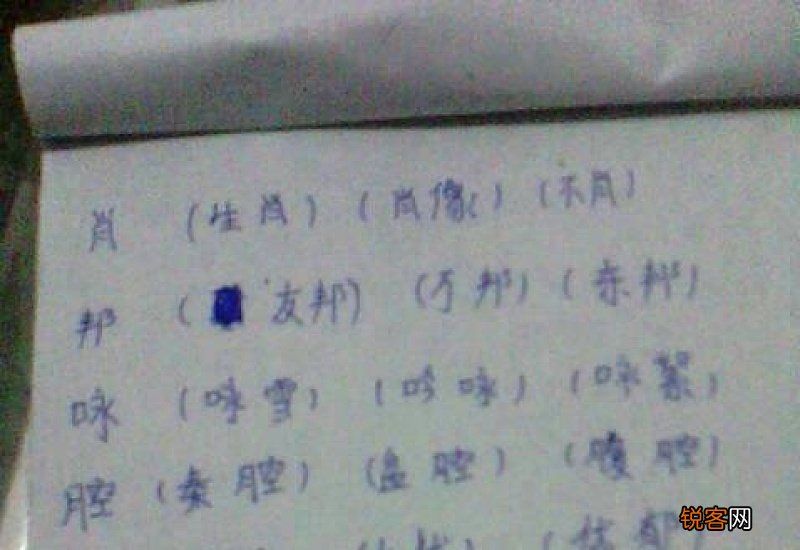 肖 (生肖) (肖像) (不肖)
邦 (友邦) (万邦) (东邦)
咏 (咏雪) (吟咏) (咏絮)
腔 (秦腔) (盆腔) (腹腔)
锐客网